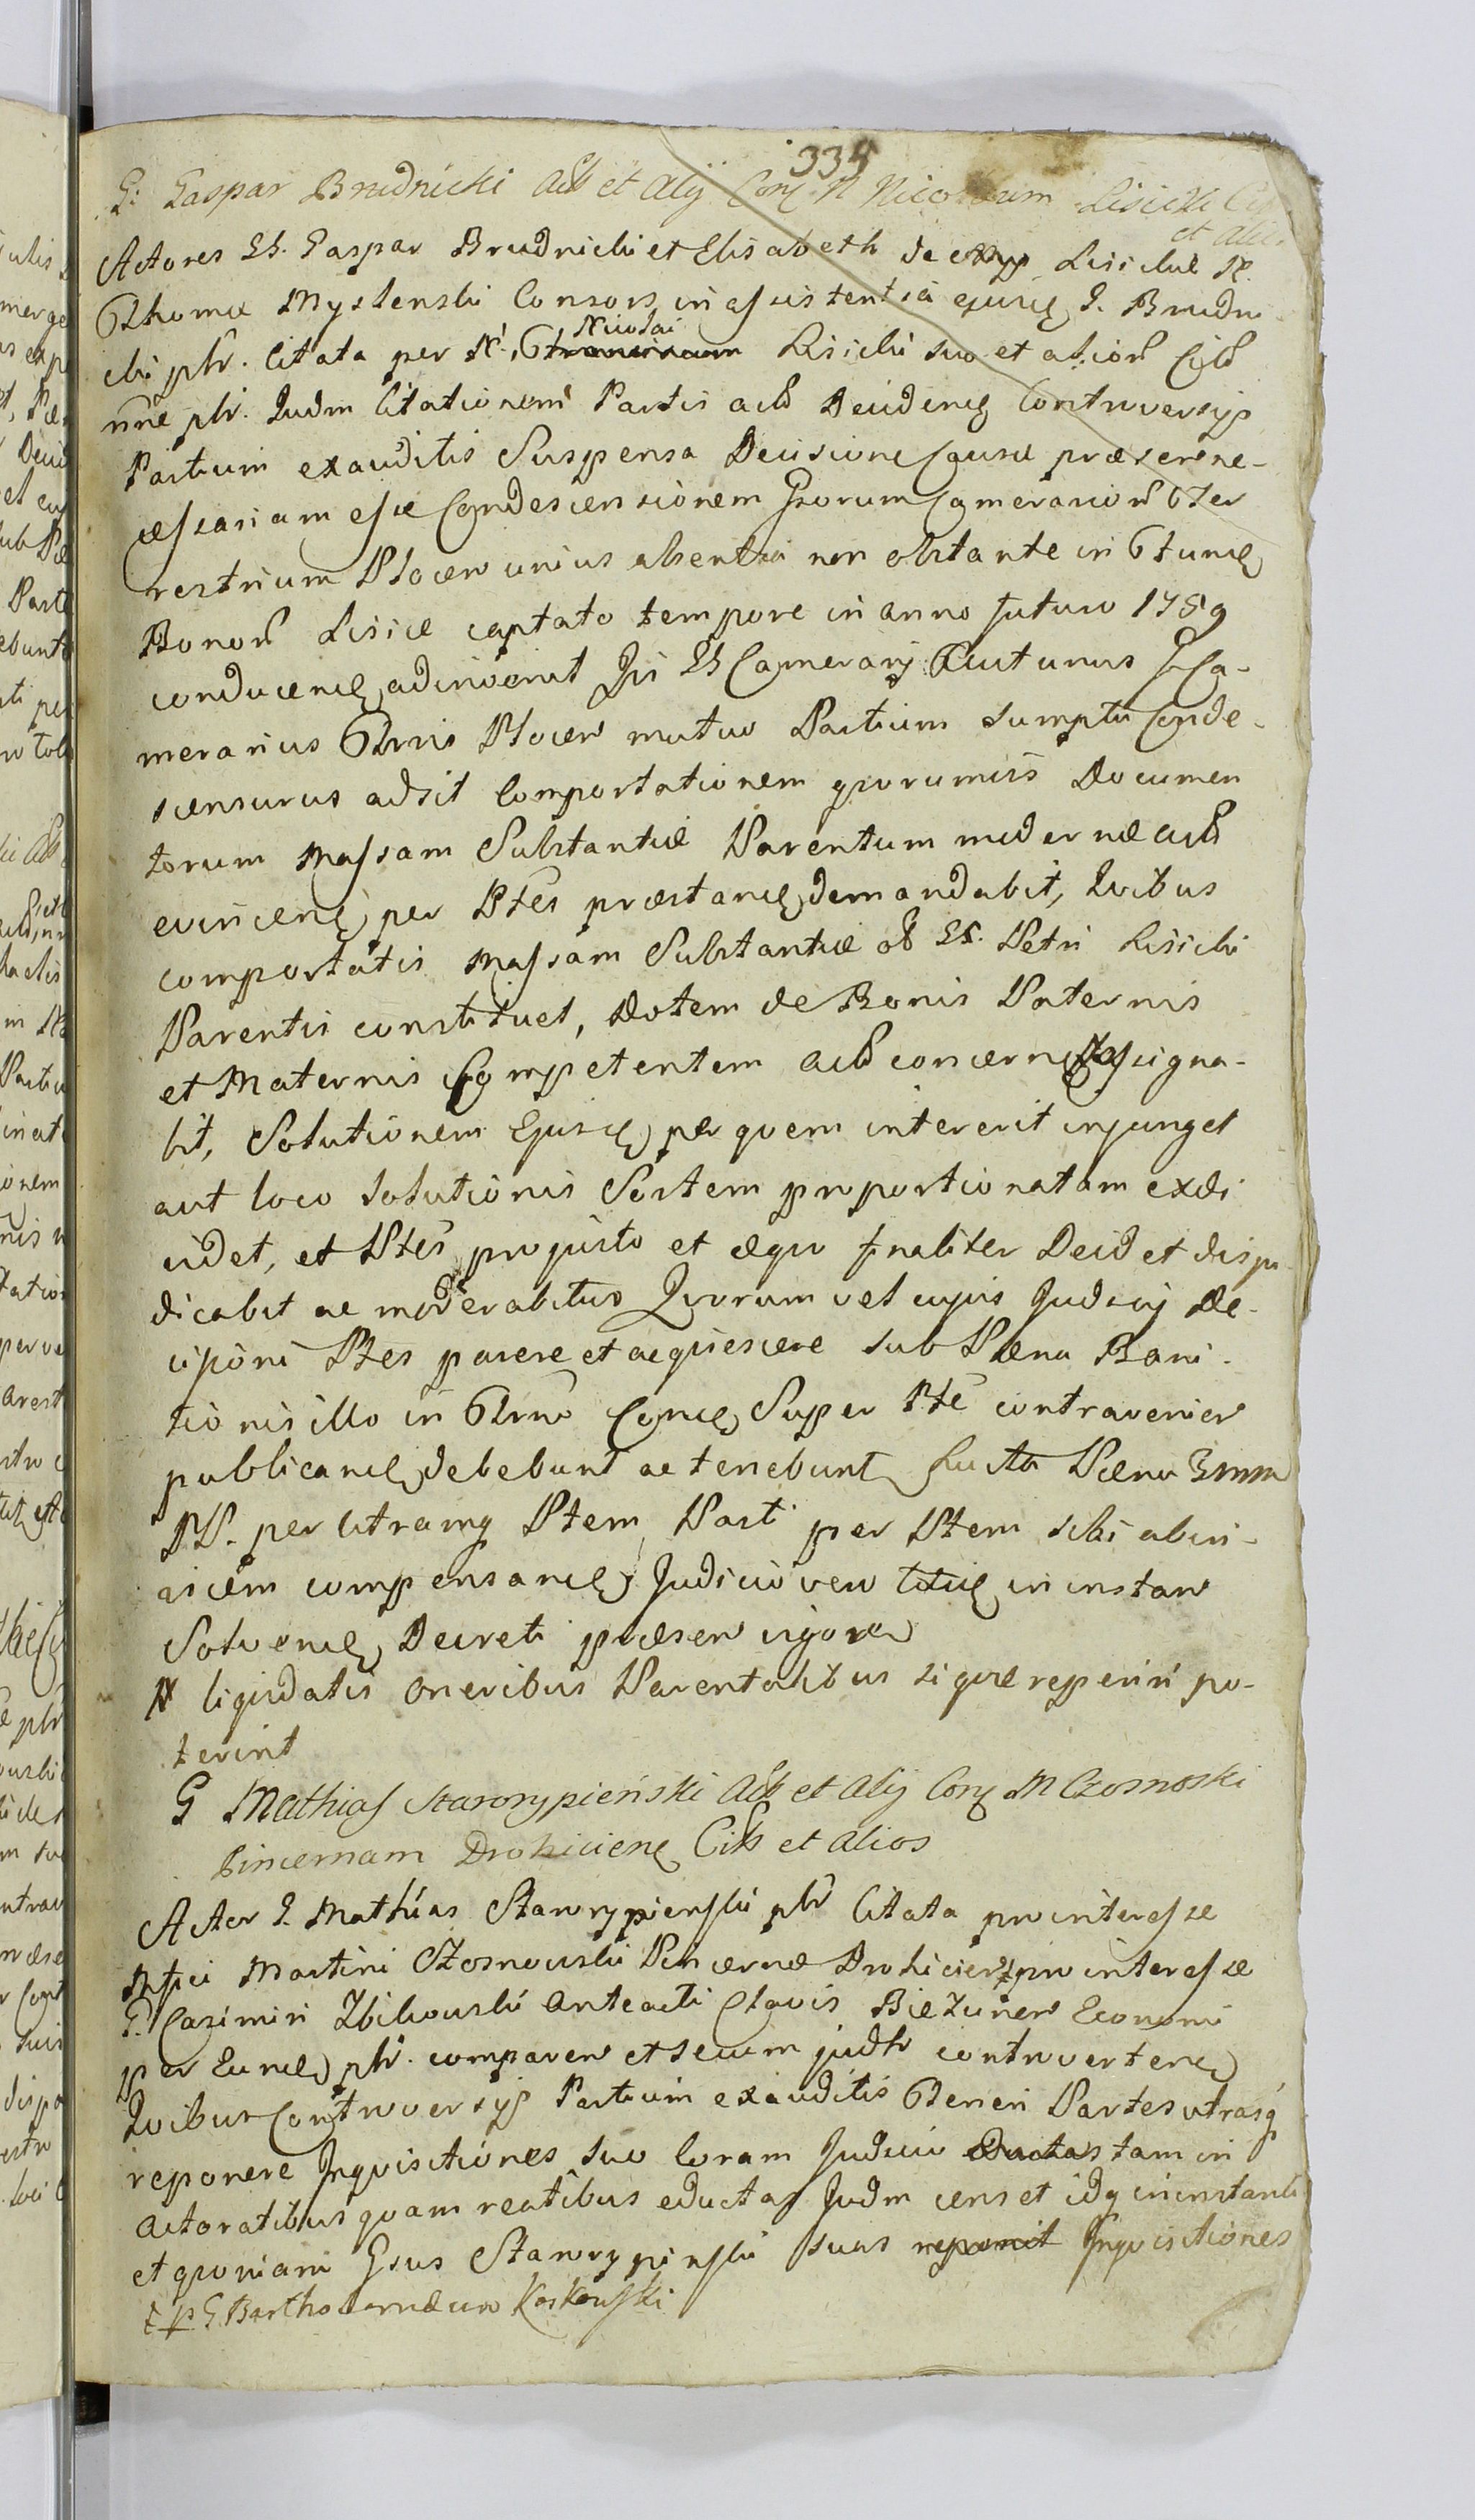 334
G. Gaspar Brudnicki Act et Alij Conq N Nicolaum Lisicki Cit
et Alios
Actores GG. Gaspar Brudnicki et Elisabeth de Lisickie N.
Thomæ Myslenski Consors in assistentia ejusq G. Brudni
cki pltr. Citata per N. Nicolai Lisicki suo et alior Citt
nne pltr. Judm Citationem Partis act Deciden Controversijs
Partium exauditis Suspensa Decisione Causæ præsen ne-
cessariam esse Condescensionem Gsorum Camerarior Ter
restrium Plocen unius absentia non obstante in Fun
Bonor Lisice captato tempore in anno futuro 1789
conducen adinvenit Qui GG Camerarij aut unus G Ca-
merarius Trris Plocen mutuo Partium sumptu Conde-
scensurus adsit Comportationem quorumvis Documen
torum Massam Substantiæ Parentum modernæ act
evincen per Ptes præstan demandabit, Quibus
comportatis Massam Substantiæ ol GG. Petri Lisicki
Parentis constituet, Dotem de Bonis Paternis
et Maternis Competentem act concernen Assigna-
bit, Solutionem Ejusq per quem intererit injunget
aut loco Solutionis Sortem proportionatam exdi
videt, et Ptes pro justo et æquo finaliter Decid et disju
dicabit ac moderabitur Quorum vel cujus Judicij De-
cisioni Ptes parere et acquiescere sub Pæna Bani-
tionis illo in Trrno Conq Super Pte contravenien
publican debebunt ac tenebuntq Lucta Pæna 3mm
PP. per utramq Ptem Parti per Ptem sibi abin-
vicem compensan Judicio vero in instan
Solven Decreti præsen vigore
# liquidatis oneribus Parentalibus si quæ reperiri po-
terint
G Mathias Starorypieński Act et Alij Conq M Czosnoski
Pincernam Drohicien Citt et Alios
Actor G. Mathias Starorypienski pltr Citata pro interesse
Mfici Martini Czosnowski Pincernæ Drohicien # pro interesse
G. Casimiri Zbikowski Anteacti Clavis Bieżunen Economi
per Eun pltr. comparen et secum judlr controverten
Quibus Controversijs Partium exauditis Teneri Partes utrasq
reponere Inquisitiones suo Coram Judicio Ductas tam in
Actoratibus quam reatibus eductas Judm censet idq in instanti
et quoniam Gsus Starorypinski suas reponit Inquisitiones
# p G. Bartholomæum Koskowski